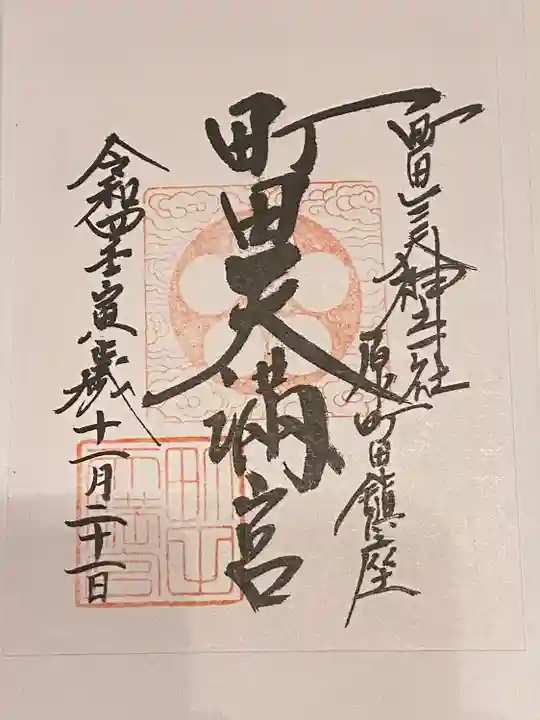 町田三天神之一社
原町田鎮座
町田天満宮
令和四壬寅歳十一月二十一日